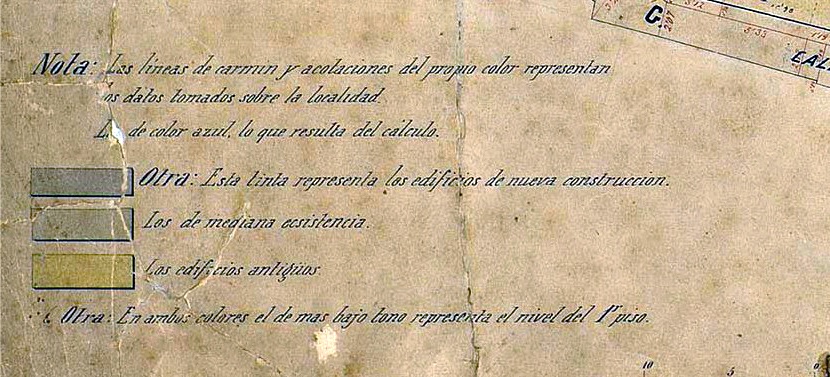 C.
297
5'35
CALL
Nota: Las lineas de carmin y acotaciones del propio color representan
os datos tomados sobre la localidad.
L de color azul, lo que resulta del cálculo.
Otra: Esta tinta representa los edificios de nueva construccion.
Los de mediana ecsistencia.
Los edificios antigüos
Otra: En ambos colores el de mas bajo tono representa el nivel del 1r piso.
10 5 0